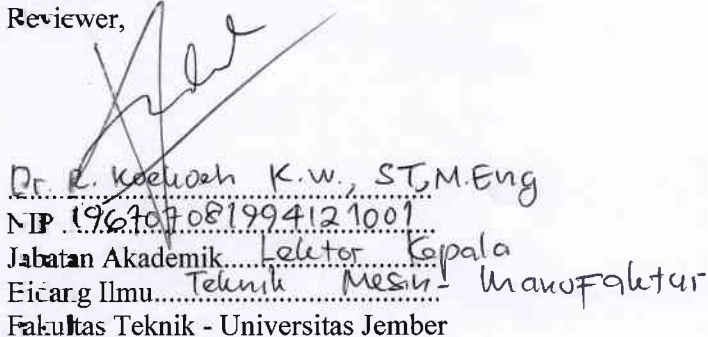 Reviewer,
Dr. R. Koekoeh K.W., ST, M.Eng
NIP 196707081994121001
Jabatan Akademik Lektor Kepala
Bidang Ilmu Teknik Mesin - Manufaktur
Fakultas Teknik - Universitas Jember